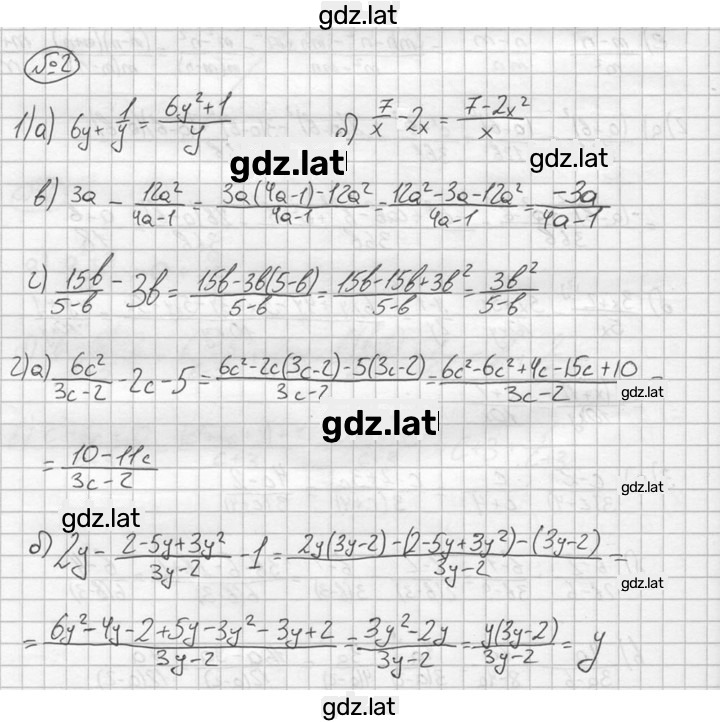 gdz.lat
№2
1) а) 6y + 1/y = (6y² + 1)/y б) 7/x - 2x = (7 - 2x²)/x
gdz.lat gdz.lat
в) 3a - 12a²/(4a-1) = (3a(4a-1) - 12a²)/(4a-1) = (12a² - 3a - 12a²)/(4a-1) = -3a/(4a-1)
г) 15b/(5-b) - 3b = (15b - 3b(5-b))/(5-b) = (15b - 15b + 3b²)/(5-b) = 3b²/(5-b)
2) а) 6c²/(3c-2) - 2c - 5 = (6c² - 2c(3c-2) - 5(3c-2))/(3c-2) = (6c² - 6c² + 4c - 15c + 10)/(3c-2) =
gdz.lat
gdz.lat
= (10 - 11c)/(3c-2)
gdz.lat
gdz.lat
б) 2y - (2 - 5y + 3y²)/(3y-2) - 1 = (2y(3y-2) - (2 - 5y + 3y²) - (3y-2))/(3y-2) =
gdz.lat
= (6y² - 4y - 2 + 5y - 3y² - 3y + 2)/(3y-2) = (3y² - 2y)/(3y-2) = y(3y-2)/(3y-2) = y
gdz.lat